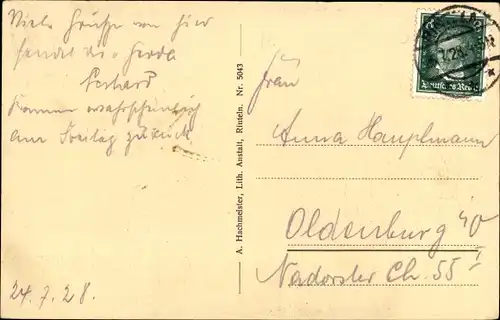 Viele Grüße von hier
sendet
Gerhard
Komme wahrscheinlich
am Freitag zurück.
24.7.28.
A. Hachmeister, Lith. Anstalt, Rinteln. Nr. 5043
Deutsches Reich
Frau
Anna Hauptmann
Oldenburg i/O
Nadorster Ch. 55